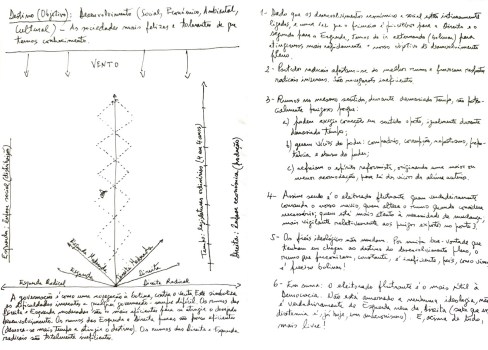 Destino (Objetivo): Desenvolvimento (Social, Económico, Ambiental,
Cultural) - As sociedades mais felizes e tolerantes de que
temos conhecimento.
VENTO
Esquerda: Enfoque social (distribuição)
Tempo: legislaturas ordinárias (4 em 4 anos)
Direita: Enfoque económico (produção)
Esquerda Moderada
Direita Moderada
Esquerda
Direita
Esquerda Radical
Direita Radical
A governação é como uma navegação à bolina, contra o vento. Este simboliza
as dificuldades inerentes a qualquer governação sempre difícil. Os rumos da
Direita e Esquerda moderadas são os mais eficientes para se atingir o desejado
desenvolvimento. Os rumos da Esquerda e Direita puras são pouco eficientes
(demora-se mais tempo a atingir o destino). Os rumos da Direita e Esquerda
radicais são totalmente ineficientes.
1- Dado que o desenvolvimento económico e social estão intimamente
ligados, e uma vez que o primeiro é prioritário para a Direita e o
segundo para a Esquerda, temos de ir alternando (bolinar) para
atingirmos mais rapidamente o nosso objetivo de desenvolvimento
pleno.
2- Partidos radicais afastam-se do melhor rumo e fornecem respostas
radicais inversas. São navegações ineficientes.
3- Rumos no mesmo sentido, durante demasiado tempo, são poten-
cialmente perigosos porque:
a) podem exigir correções em sentido oposto, igualmente durante
demasiado tempo;
b) geram vícios do poder: compadrio, corrupção, nepotismo, prepo-
tência e abuso do poder;
c) refreiam o espírito reformista, originando uma maior ou
menor acomodação, para lá dos vícios da alínea anterior.
4- Assim sendo é o eleitorado flutuante quem verdadeiramente
comanda o nosso navio, quem altera o rumo quando considera
necessário; quem está mais atento à necessidade de mudança,
mais vigilante relativamente aos perigos expostos no ponto 3.
5- Os fiéis ideológicos não mudam. Por muita boa-vontade que
tenham em chegar ao destino do desenvolvimento pleno, o
rumo que preconizam, constante, é ineficiente, pois, como vimos,
é preciso bolinar!
6- Em suma: O eleitorado flutuante é o mais útil à
Democracia. Não está amarrado a nenhuma ideologia, não
é verdadeiramente de Esquerda nem de Direita (sabe que esta
distinção é, já hoje, um anacronismo). E, acima de tudo,
mais livre!